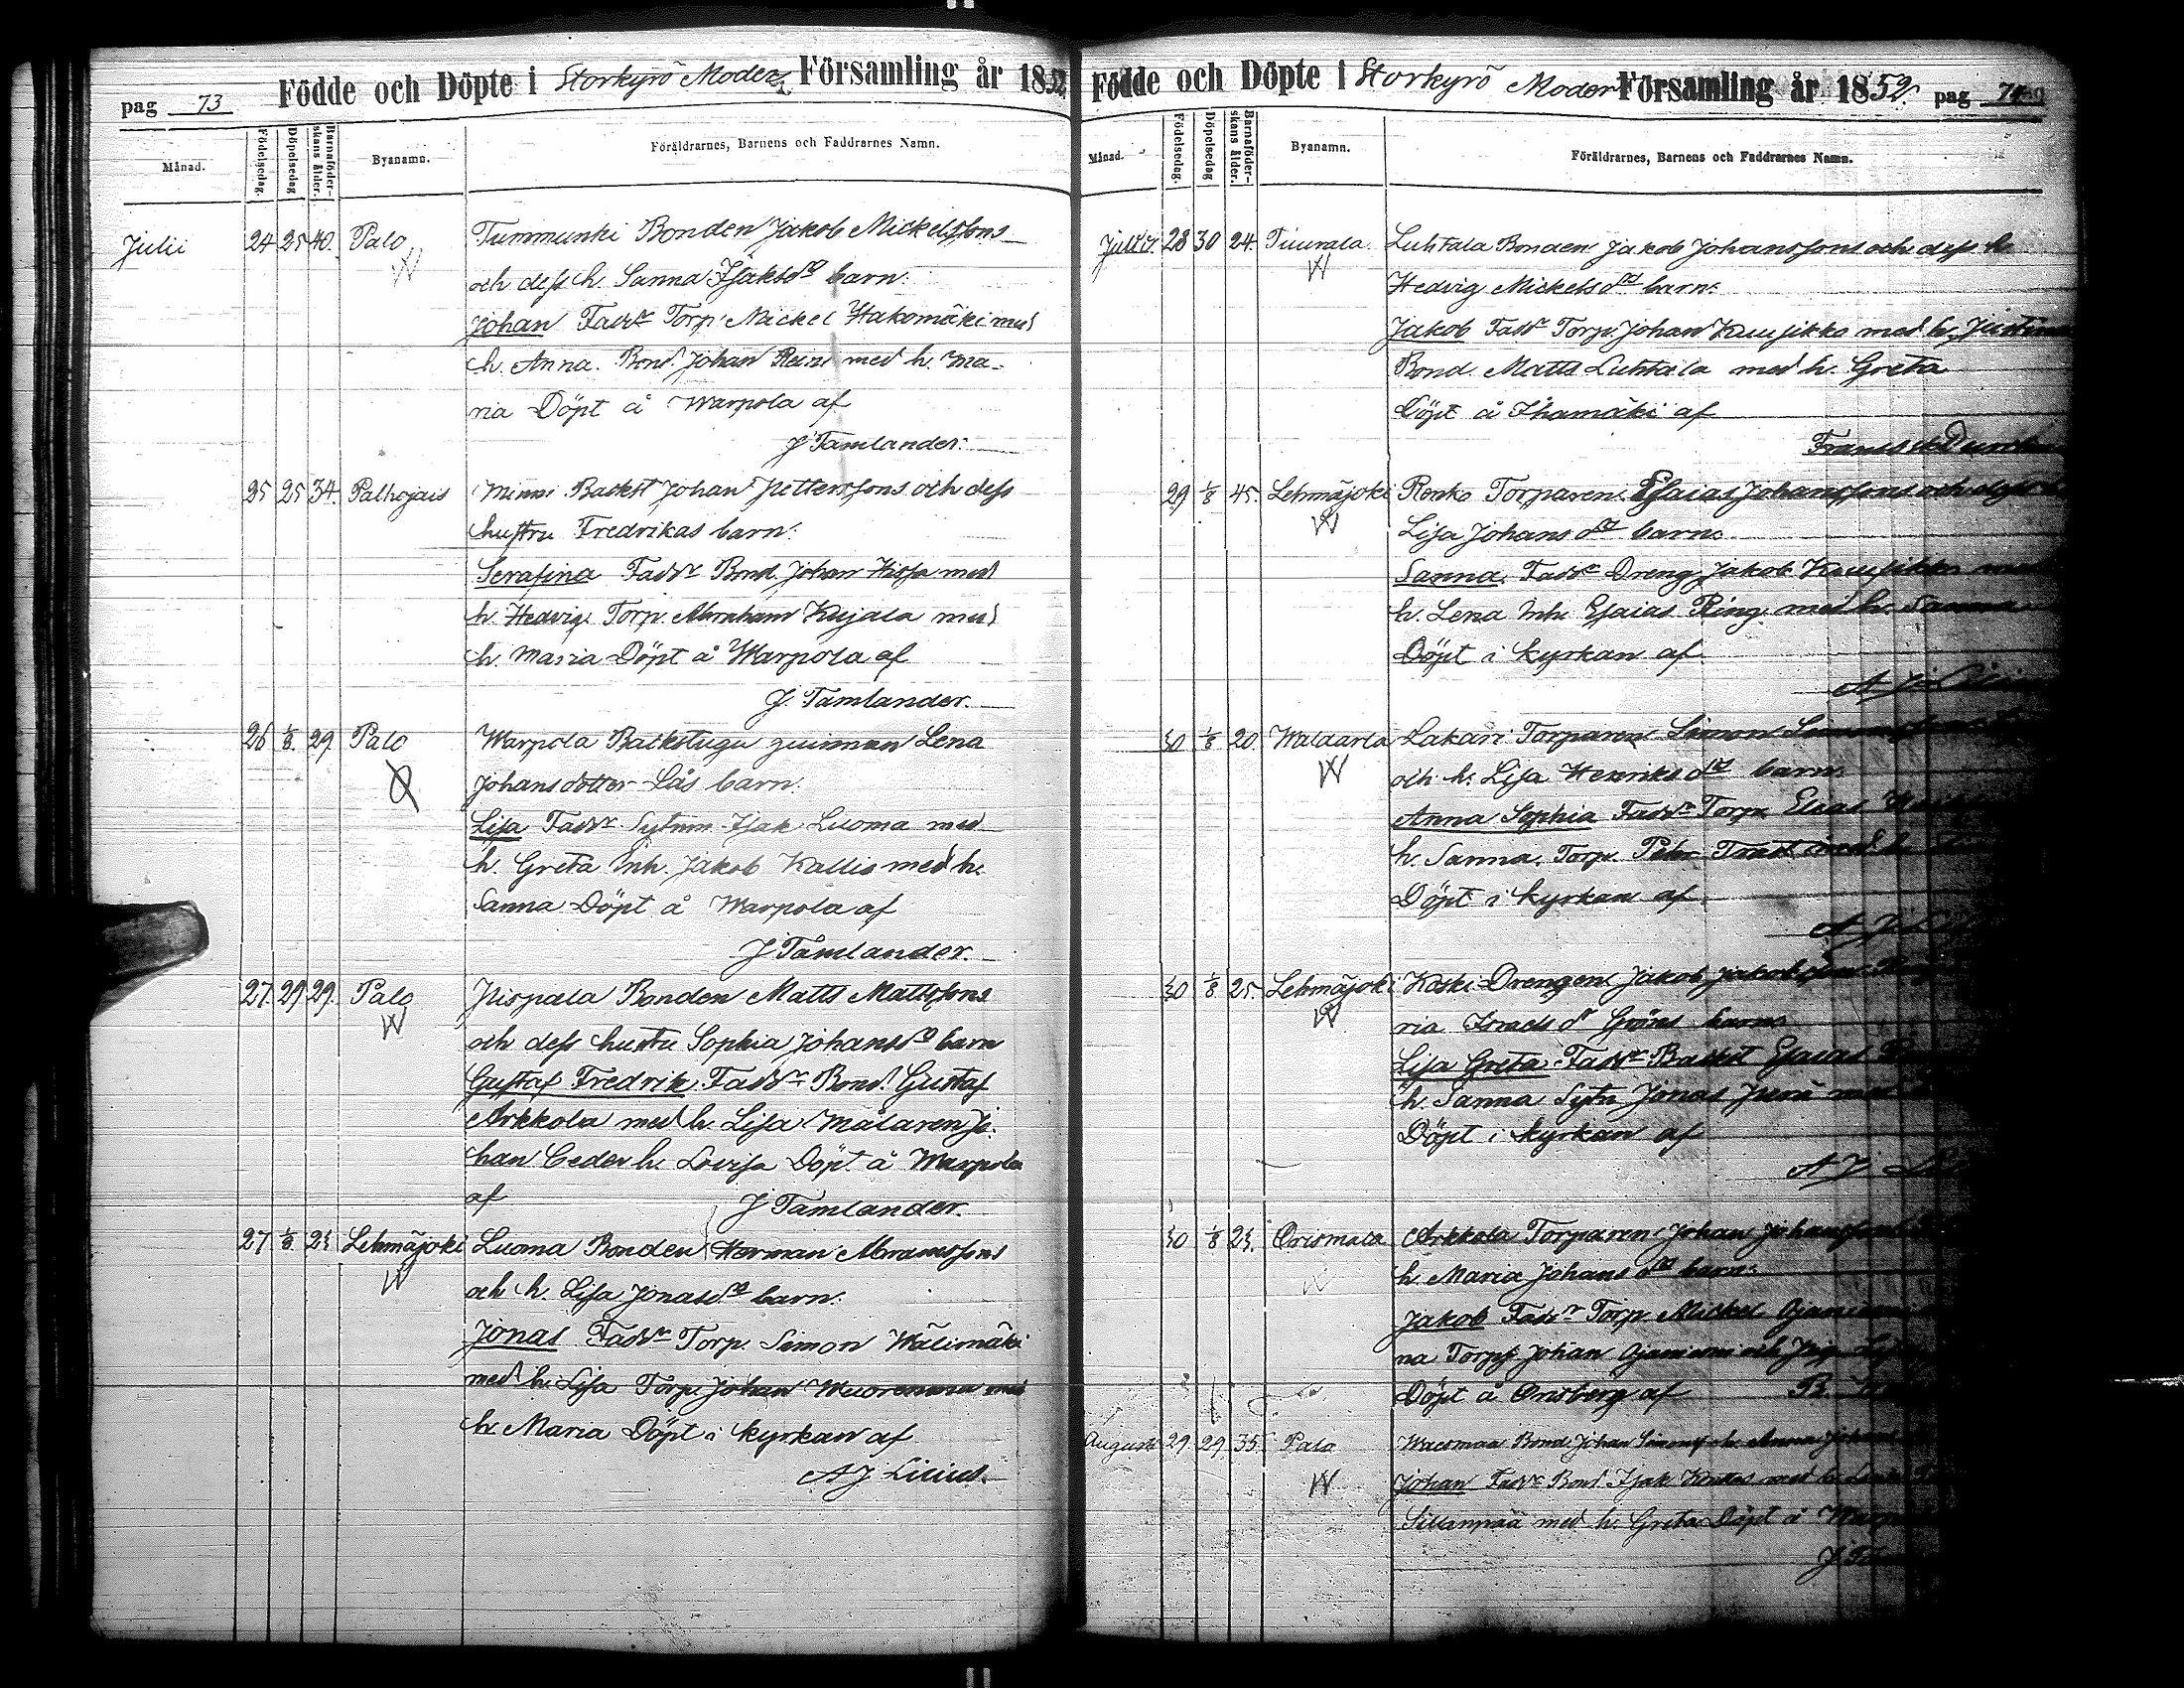 Födde och Döpte i Storkyrö Moder Församling år 1852
pag 73
Månad.
Födelsedag.
Döpelsedag
Barnaföder-
skans ålder.
Byanamn.
Föräldrarnes, Barnens och Faddrarnes Namn.
Julii 24 25 40. Palo Tummunki Bonden Jakob Mickelssons
W och dess h. Sanna Isaksd barn:
Johan Faddr Torp. Mickel Hakomäki med
h. Anna. Bond. Johan Rein med h. Ma-
ria Döpt å Warpola af
J Tamlander.
25 25 34. Palhojais Minni Backst Johan Petterssons och dess
hustru Fredrikas barn:
Serafina Faddr Bond. Johan Hissa med
h. Hedvig Torp. Abraham Kujala med
h. Maria Döpt å Warpola af
J. Tamlander.
26 1/8. 29. Palo Warpola Backstugu quinnan Lena
Johansdotter Lås barn:
Lisa Faddr Sytnm. Isak Luoma med
h. Greta Inh. Jakob Kallio med h.
Sanna Döpt å Warpola af
J Tamlander.
27. 29 29. Palo Pispala Bonden Matts Mattssons
W och dess hustru Sophia Johansd barn
Gustaf Fredrik Faddr Bond. Gustaf
Arkkola med h. Lisa Målaren Jo-
han Ceder h. Lovisa Döpt å Warpola
af J Tamlander.
27 1/8 23 Lehmäjoki Luoma Bonden Herman Abramssons
W och h. Lisa Jonasd barn:
Jonas Faddr Torp. Simon Wälimäki
med h. Lisa Torp. Johan Wuorenmaa med
h. Maria Döpt i kyrkan af
A J Lilius.
Födde och Döpte i Storkyrö Moder Församling år 1852. pag 74
Månad.
Födelsedag.
Döpelsedag
Barnaföder-
skans ålder.
Byanamn.
Föräldrarnes, Barnens och Faddrarnes Namn.
Julii 28 30 24. Tuurala Luhtala Bonden Jakob Johanssons och dess h.
W Hedvig Mickelsd barn:
Jakob Faddr Torp. Johan Kuusikko med h. Justina
Bond. Matts Luhtala med h. Greta
Döpt å Ihamäki af
Frans
29 1/8 45. Lehmäjoki Renko Torparen Esaias Johanssons och dess
W Lisa Johansd barn:
Sanna. Faddr Dreng Jakob Kuusikko med
h. Lena Inh. Esaias Ring med h. Sanna
Döpt i kyrkan af
A J Lilius
30 1/8 20. Waldarla Lakari Torparen Simon
W och h. Lisa Henriksd barn:
Anna Sophia Faddr Torp. Elias
h. Sanna. Torp. Petr Trast med h
Döpt i kyrkan af
A J
30 1/8 25. Lehmäjoki Koski Drengen Jakob Jakobsson
W ria Israels d Gröns barn:
Lisa Greta Faddr Backst Esaias
h. Sanna Sytn Jonas Perä med
Döpt i kyrkan af
A J
30 1/8 23. Orismala Arkkola Torparen Johan Johanssons
W h. Maria Johansd barn:
Jakob Faddr Torp. Mickel
na Torps Johan Ojaniemi och
Döpt å Orisberg af
Augusti 29 29 35. Palo Wacsmaa Bond. Johan h. Anna
W Johan Faddr Bond. Isak med h.
Sillanpää med h. Greta Döpt å